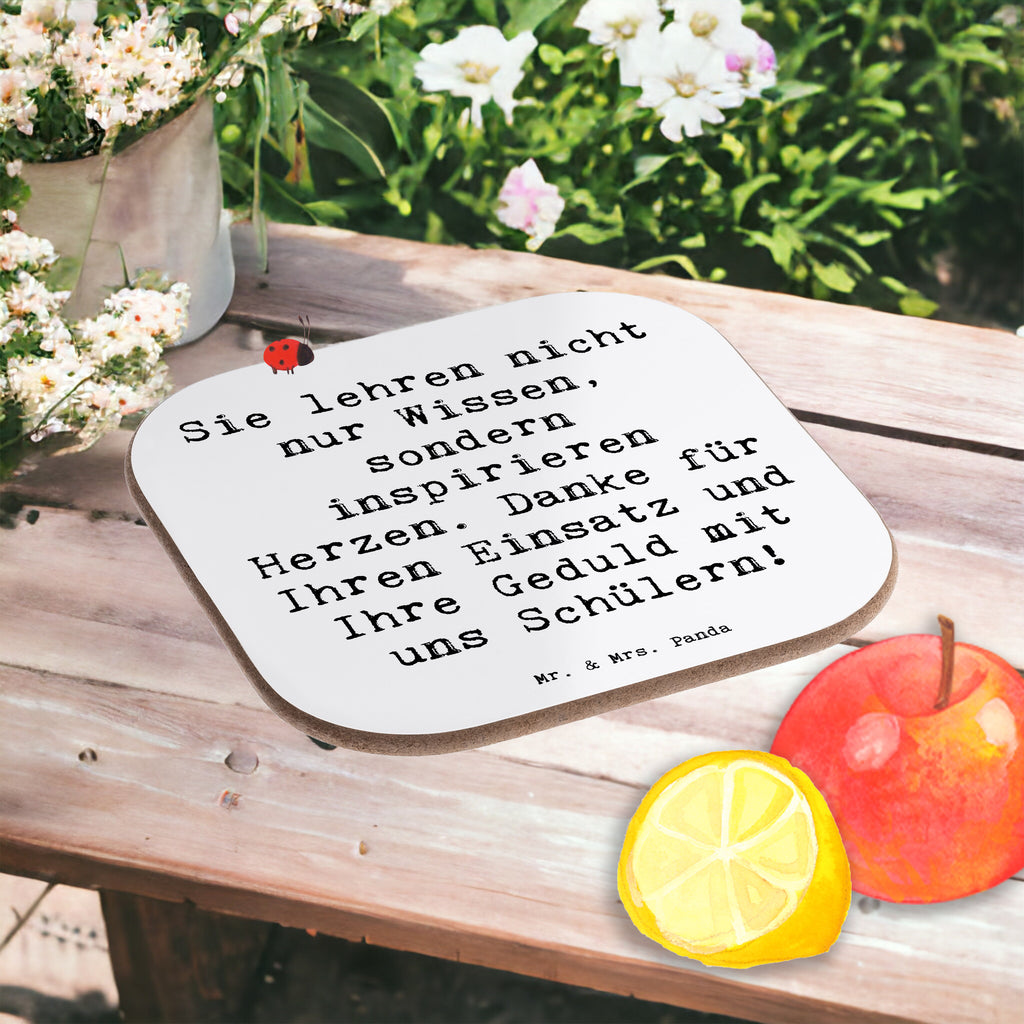 Sie lehren nicht
nur Wissen,
sondern
inspirieren
Herzen. Danke für
Ihren Einsatz und
Ihre Geduld mit
uns Schülern!
Mr. & Mrs. Panda